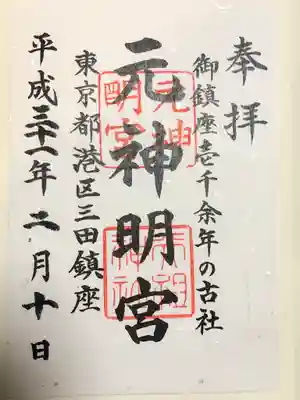 奉拝
御鎮座壱千余年の古社
元神明宮
東京都港区三田鎮座
平成三十一年二月十日
元神明宮